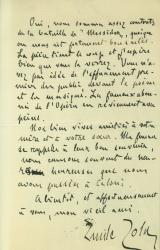 Oui, nous sommes assez contents
de la bataille de "Messidor", quoique
on nous ait fortement bousculés.
La pièce tient le coup et j'espère
bien que vous la verrez. Vous n'a-
vez pas idée de l'effarement pre-
mier du public devant le poème
et la musique. Les
de l'Opéra en reviennent avec
peine.
Nos bien vives amitiés à votre
mère et à votre sœur. Ma femme
se rappelle à leur bon souvenir,
nous causons souvent des
heures heureuses que nous
avons passées à
A bientôt, et affectueusement
à vous, mon vieil ami.
Emile Zola